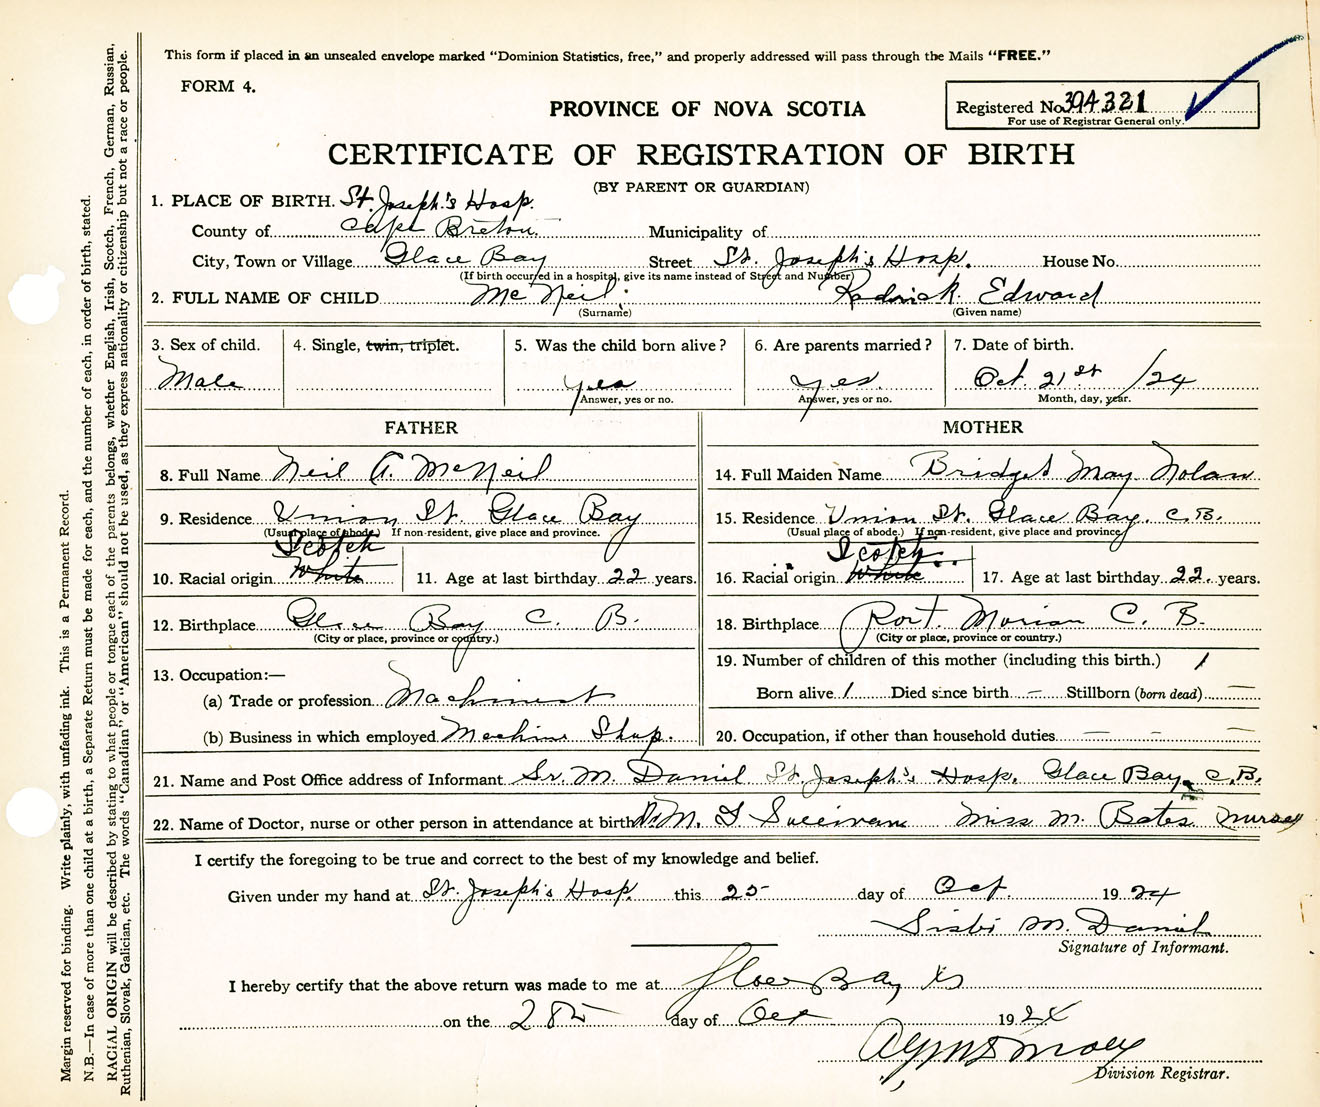 This form if placed in an unsealed envelope marked "Dominion Statistics, free," and properly addressed will pass through the Mails "FREE."
FORM 4.
PROVINCE OF NOVA SCOTIA
Registered No. 394321
For use of Registrar General only.
CERTIFICATE OF REGISTRATION OF BIRTH
(BY PARENT OR GUARDIAN)
1. PLACE OF BIRTH. St. Joseph's Hosp.
County of Cape Breton. Municipality of
City, Town or Village Glace Bay Street St. Joseph's Hosp. House No.
(If birth occurred in a hospital, give its name instead of Street and Number)
2. FULL NAME OF CHILD McNeil. Rodrick Edward
(Surname) (Given name)
3. Sex of child. 4. Single, twin, triplet. 5. Was the child born alive? 6. Are parents married? 7. Date of birth.
Male yes yes. Oct. 21st /24
Answer, yes or no. Answer, yes or no. Month, day, year.
FATHER MOTHER
8. Full Name Neil A. McNeil 14. Full Maiden Name Bridget May Nolan
9. Residence Union St. Glace Bay 15. Residence Union St. Glace Bay. C.B.
(Usual place of abode.) If non-resident, give place and province. (Usual place of abode.) If non-resident, give place and province.
Scotch Scotch
10. Racial origin White 11. Age at last birthday 22 years. 16. Racial origin White 17. Age at last birthday 22. years.
12. Birthplace Glace Bay C. B. 18. Birthplace Port. Morian C. B.
(City or place, province or country.) (City or place, province or country.)
13. Occupation:— 19. Number of children of this mother (including this birth.) 1
(a) Trade or profession Machinist Born alive 1 Died since birth — Stillborn (born dead) —
(b) Business in which employed Machine Shop. 20. Occupation, if other than household duties — — —
21. Name and Post Office address of Informant Sr. M. Daniel St. Joseph's Hosp. Glace Bay, C.B.
22. Name of Doctor, nurse or other person in attendance at birth Dr. M. Sullivan Miss M. Bates Nurse
I certify the foregoing to be true and correct to the best of my knowledge and belief.
Given under my hand at St. Joseph's Hosp. this 25 day of Oct. 1924
Sister M. Daniel
Signature of Informant.
I hereby certify that the above return was made to me at Glace Bay NS
on the 28th day of Oct 1924
Division Registrar.
Margin reserved for binding. Write plainly, with unfading ink. This is a Permanent Record.
N.B.—In case of more than one child at a birth, a Separate Return must be made for each, and the number of each, in order of birth, stated.
RACIAL ORIGIN will be described by stating to what people or tongue each of the parents belongs, whether English, Irish, Scotch, French, German, Russian,
Ruthenian, Slovak, Galician, etc. The words "Canadian" or "American" should not be used, as they express nationality or citizenship but not a race or people.